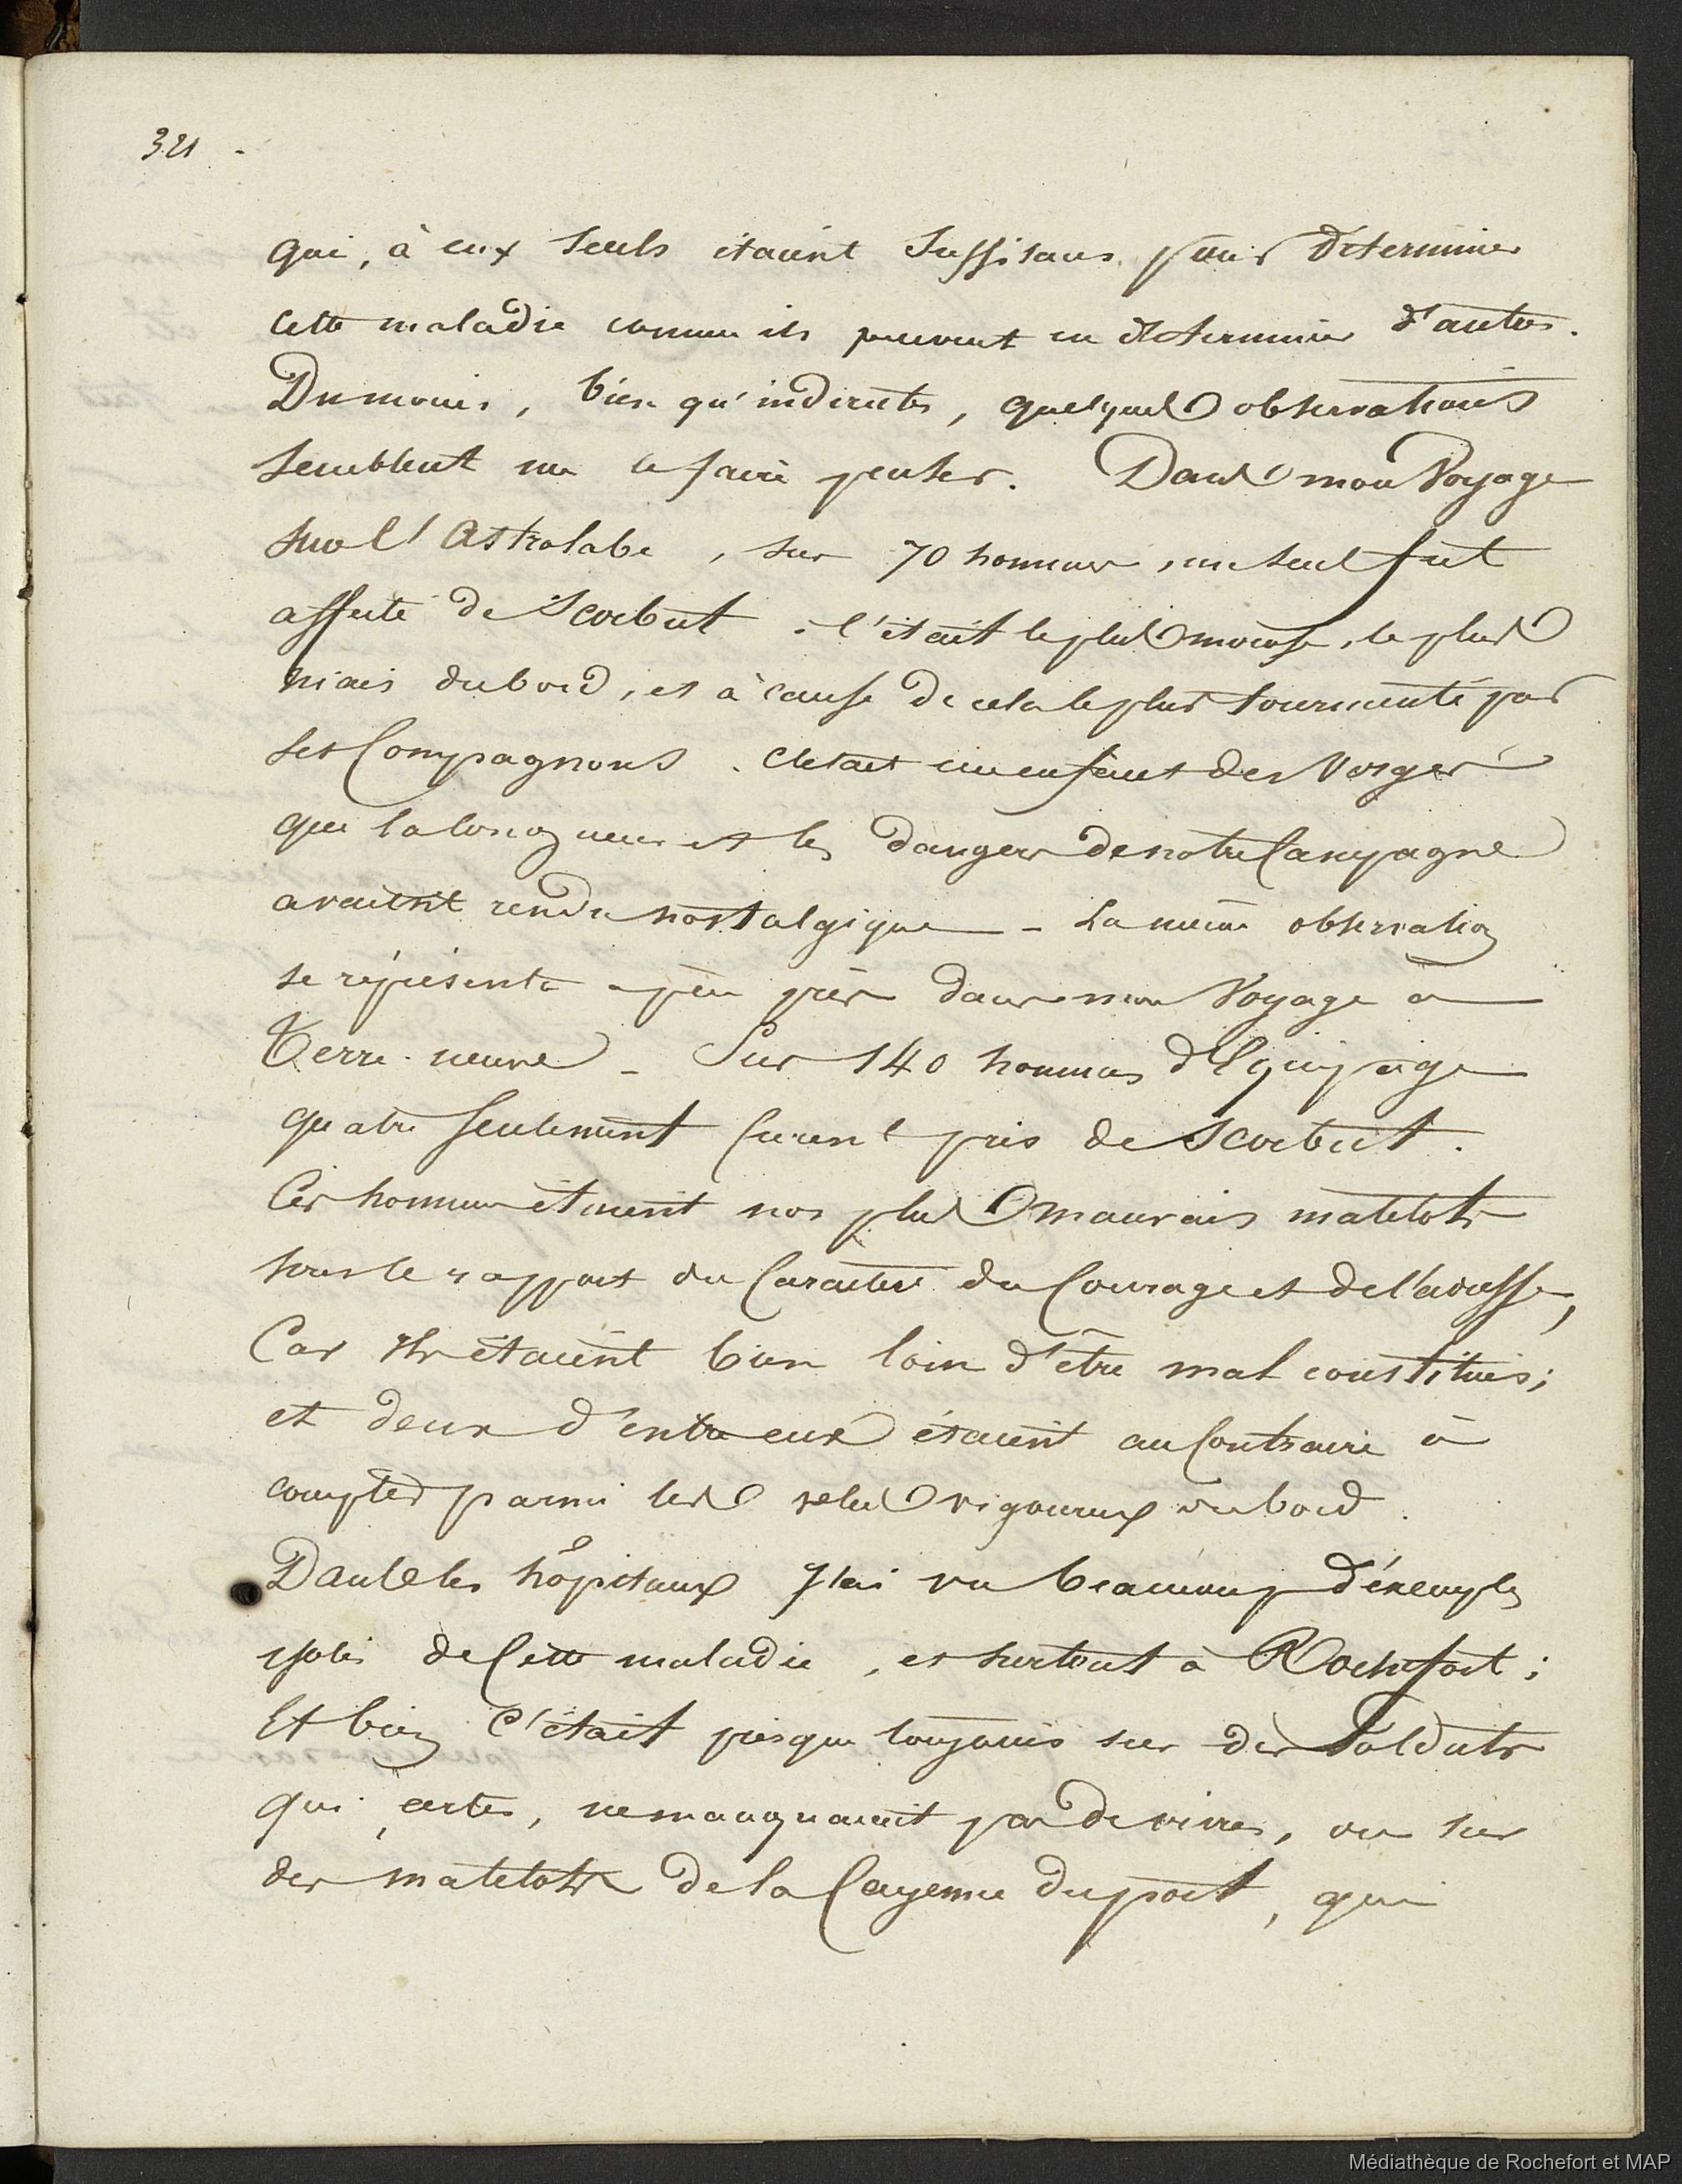 321 -
qui, à eux seuls étaient suffisans pour déterminer
cette maladie comme ils peuvent en déterminer d'autres.
Dumoins, bien qu'indirectes, quelques observations
semblent me le faire penser. Dans mon Voyage
sur l'Astrolabe, sur 70 hommes, un seul fut
affecté de Scorbut ; c'était le plus le plus
niais du bord, et à cause de cela le plus tourmenté par
ses Compagnons. C'était un enfant des Vosges
que la longueur et les dangers de notre Campagne
avaient rendu nostalgique - La même observation
se représenta à peu près dans mon Voyage à
Terre-neuve - Sur 140 hommes d'Equipage
quatre seulement furent pris de Scorbut.
Ces hommes étaient nos plus mauvais matelots
sous le rapport du Caractère du Courage et de l'adresse,
Car ils étaient bien loin d'être mal constitués ;
et deux d'entre eux étaient au Contraire à
compter parmi les plus vigoureux du bord.
Dans les hôpitaux J'ai vu beaucoup d'éxemples
isolés de Cette maladie, et surtout à Rochefort ;
Et bien C'était presque toujours sur des Soldats
qui, certes, ne manquaient pas de vivres, ou sur
des matelots de la Cayenne du port, qui
Médiathèque de Rochefort et MAP